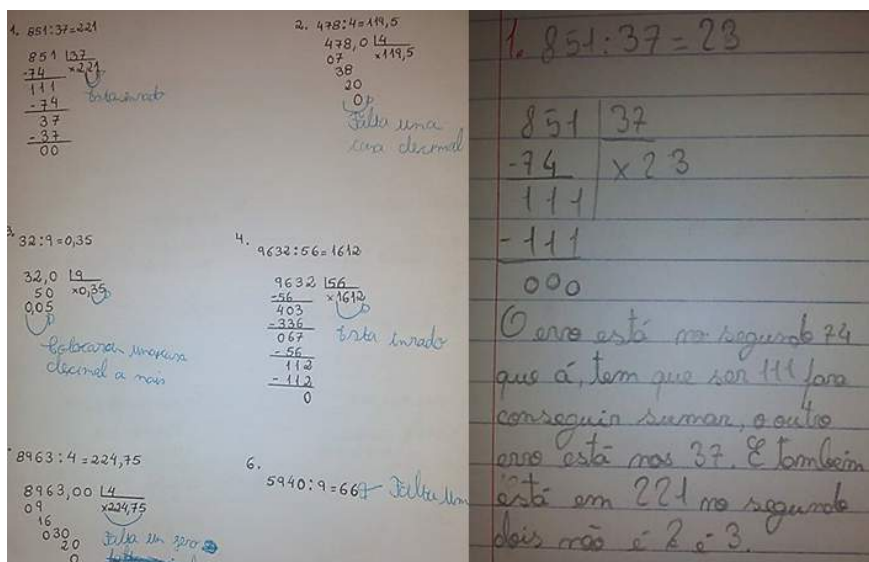 1. 851:37=221
851 37
-74 x221
111
-74
37
-37
00
Esta enrado
2. 478:4=119,5
478,0 4
07 x119,5
38
20
0
Falta uma
casa decimal
32:9=0,35
32,0 9
50 x0,35
0,05
Colocaram uma casa
decimal a mais
4.
9632:56=1612
9632 56
-56 x1612
403
-336
067
-56
112
-112
0
Esta enrado
8963:4=224,75
8963,00 4
09 x224,75
16
030
20
0
Falta um zero
6.
5940:9=667 Falta um
1. 851:37=23
851 37
-74 x23
111
-111
000
O erro está no segundo 74
que á, tem que ser 111 para
conseguir sumar, o outro
erro está nos 37. E também
está em 221 no segundo
dois não é 2 é 3.